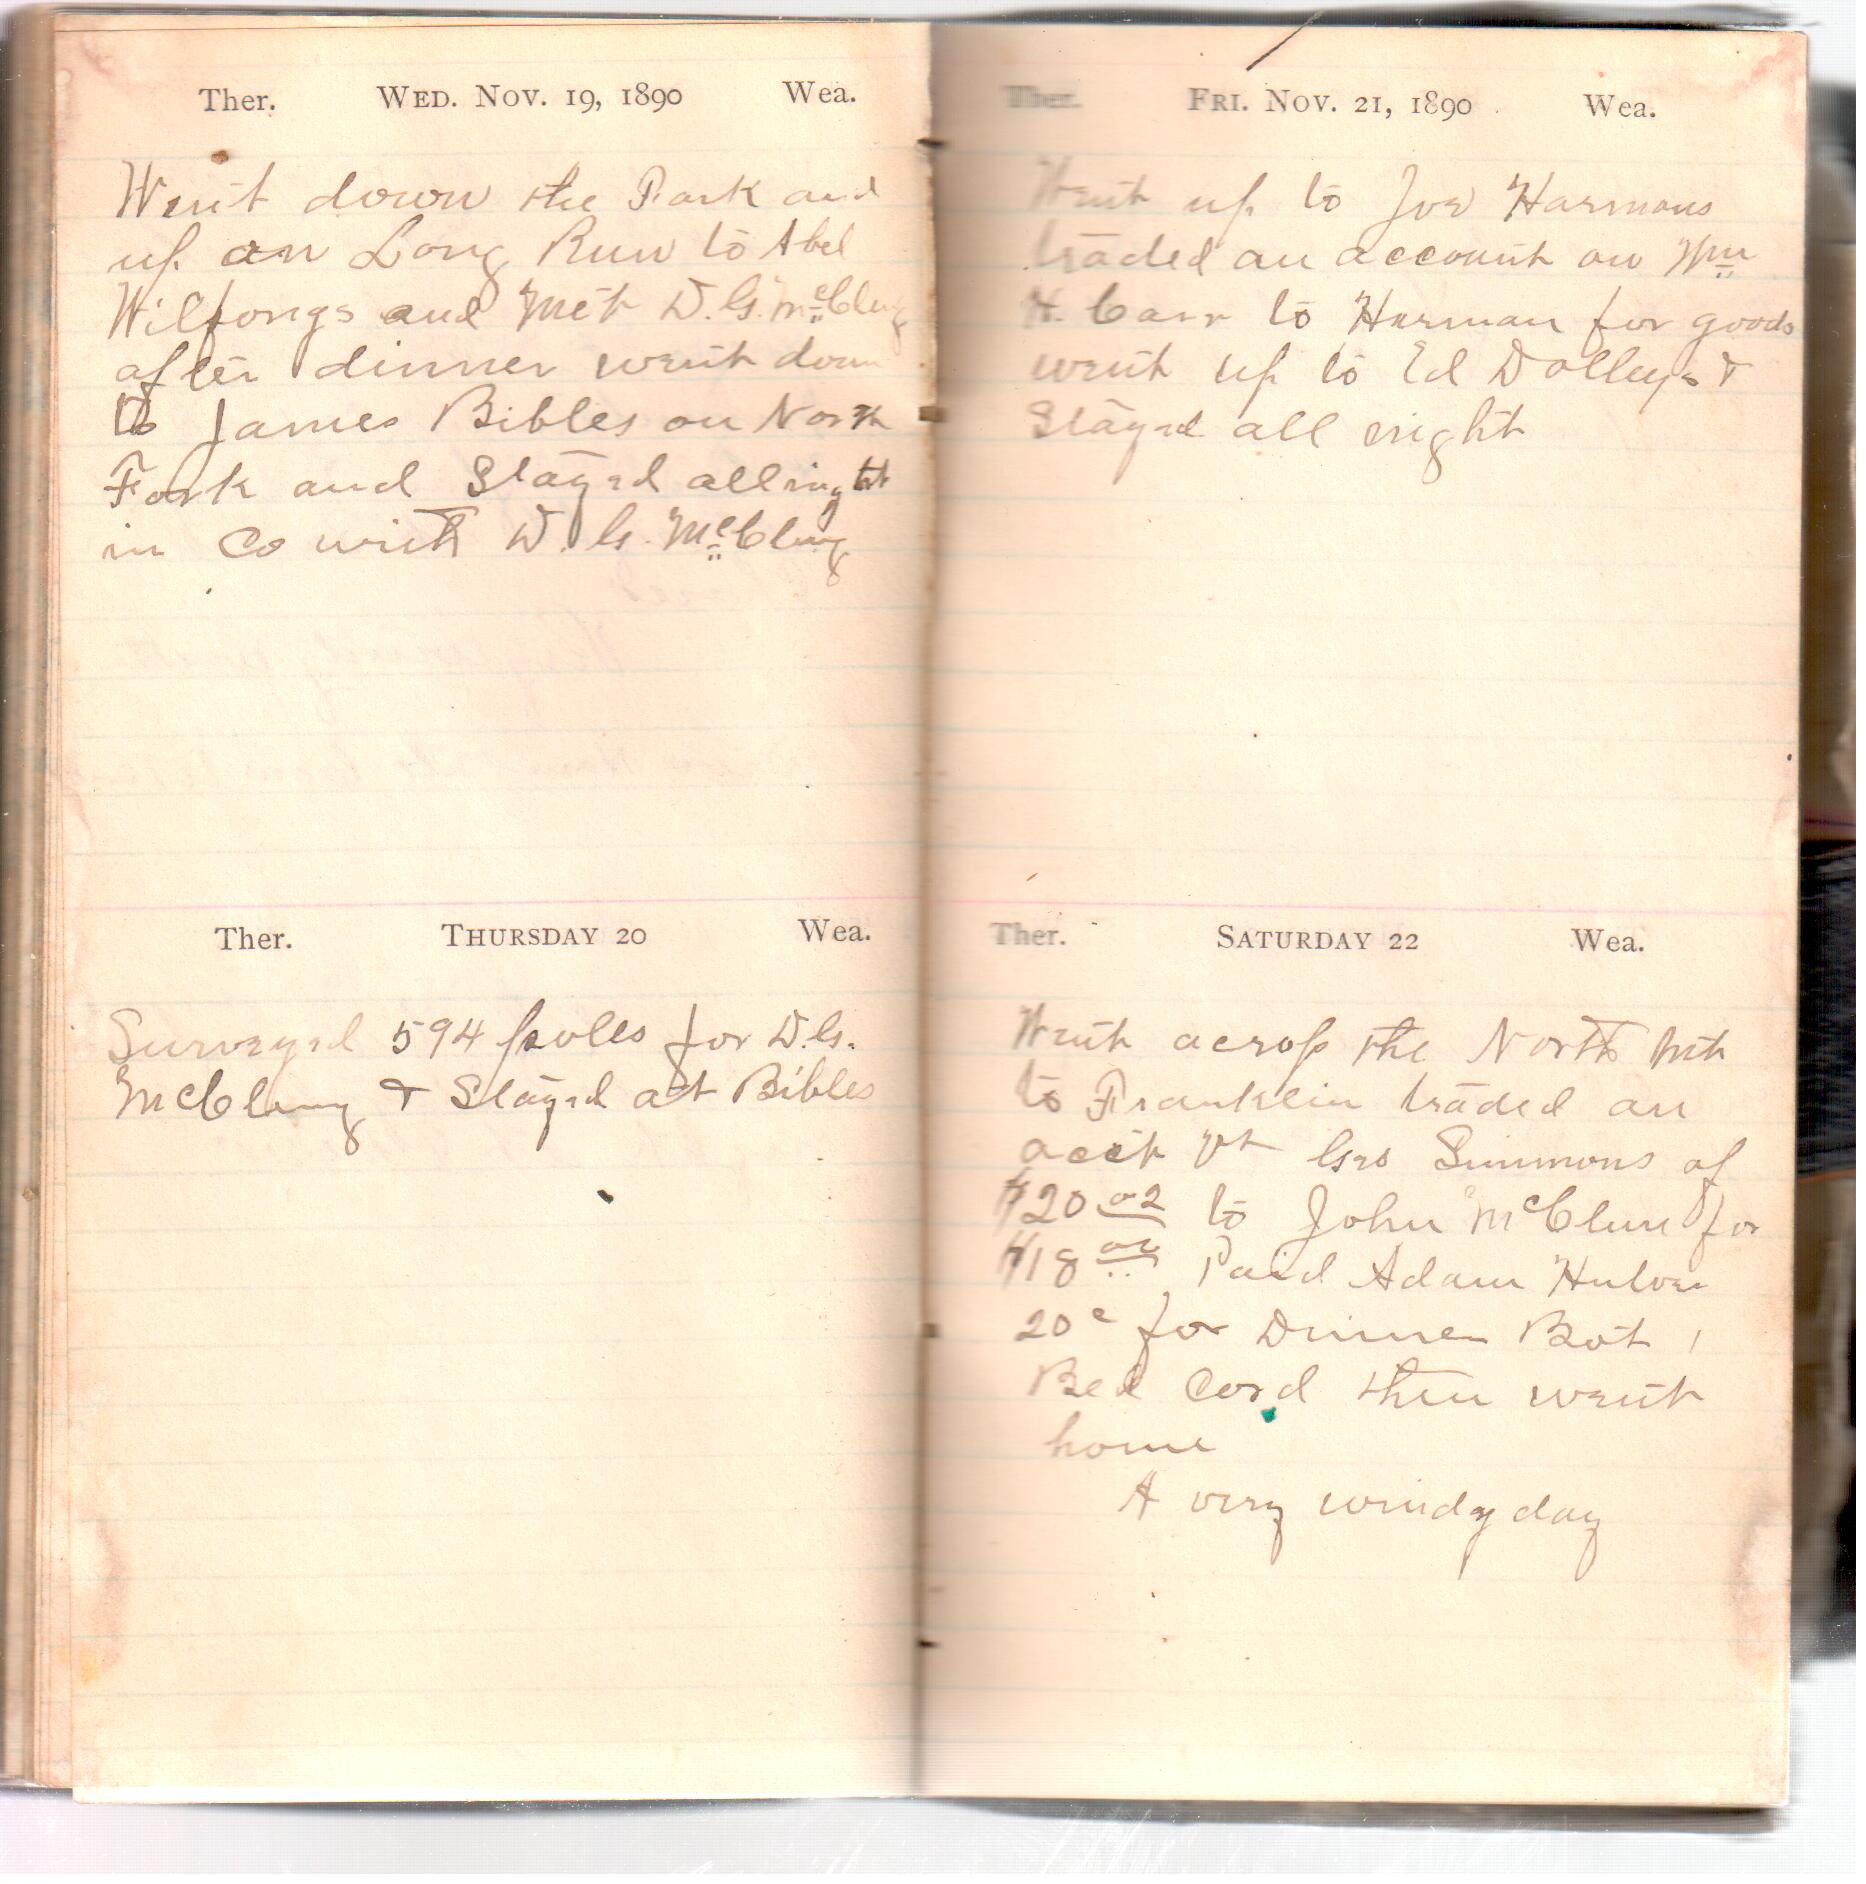 Ther. WED. NOV. 19, 1890 Wea.
Went down the Fork and
up on Long Run to Abel
Wilfongs and Met D. G. McClung
after dinner went down
to James Bibles on North
Fork and Stayed all night
in Co with D. G. McClung
Ther. THURSDAY 20 Wea.
Surveyed 594 poles for D. G.
McClung & Stayed at Bibles
Ther. FRI. NOV. 21, 1890 Wea.
Went up to Joe Harmons
traded an account on Wm
H. Carr to Harman for goods
went up to Ed Dolleys &
Stayed all night
Ther. SATURDAY 22 Wea.
Went across the North Mt
to Franklin traded an
acct vs Geo Simmons of
$20 02 to John McClure for
$18 00 Paid Adam
20c for Dinner Bot 1
Bed Cord then went
home
A very windy day